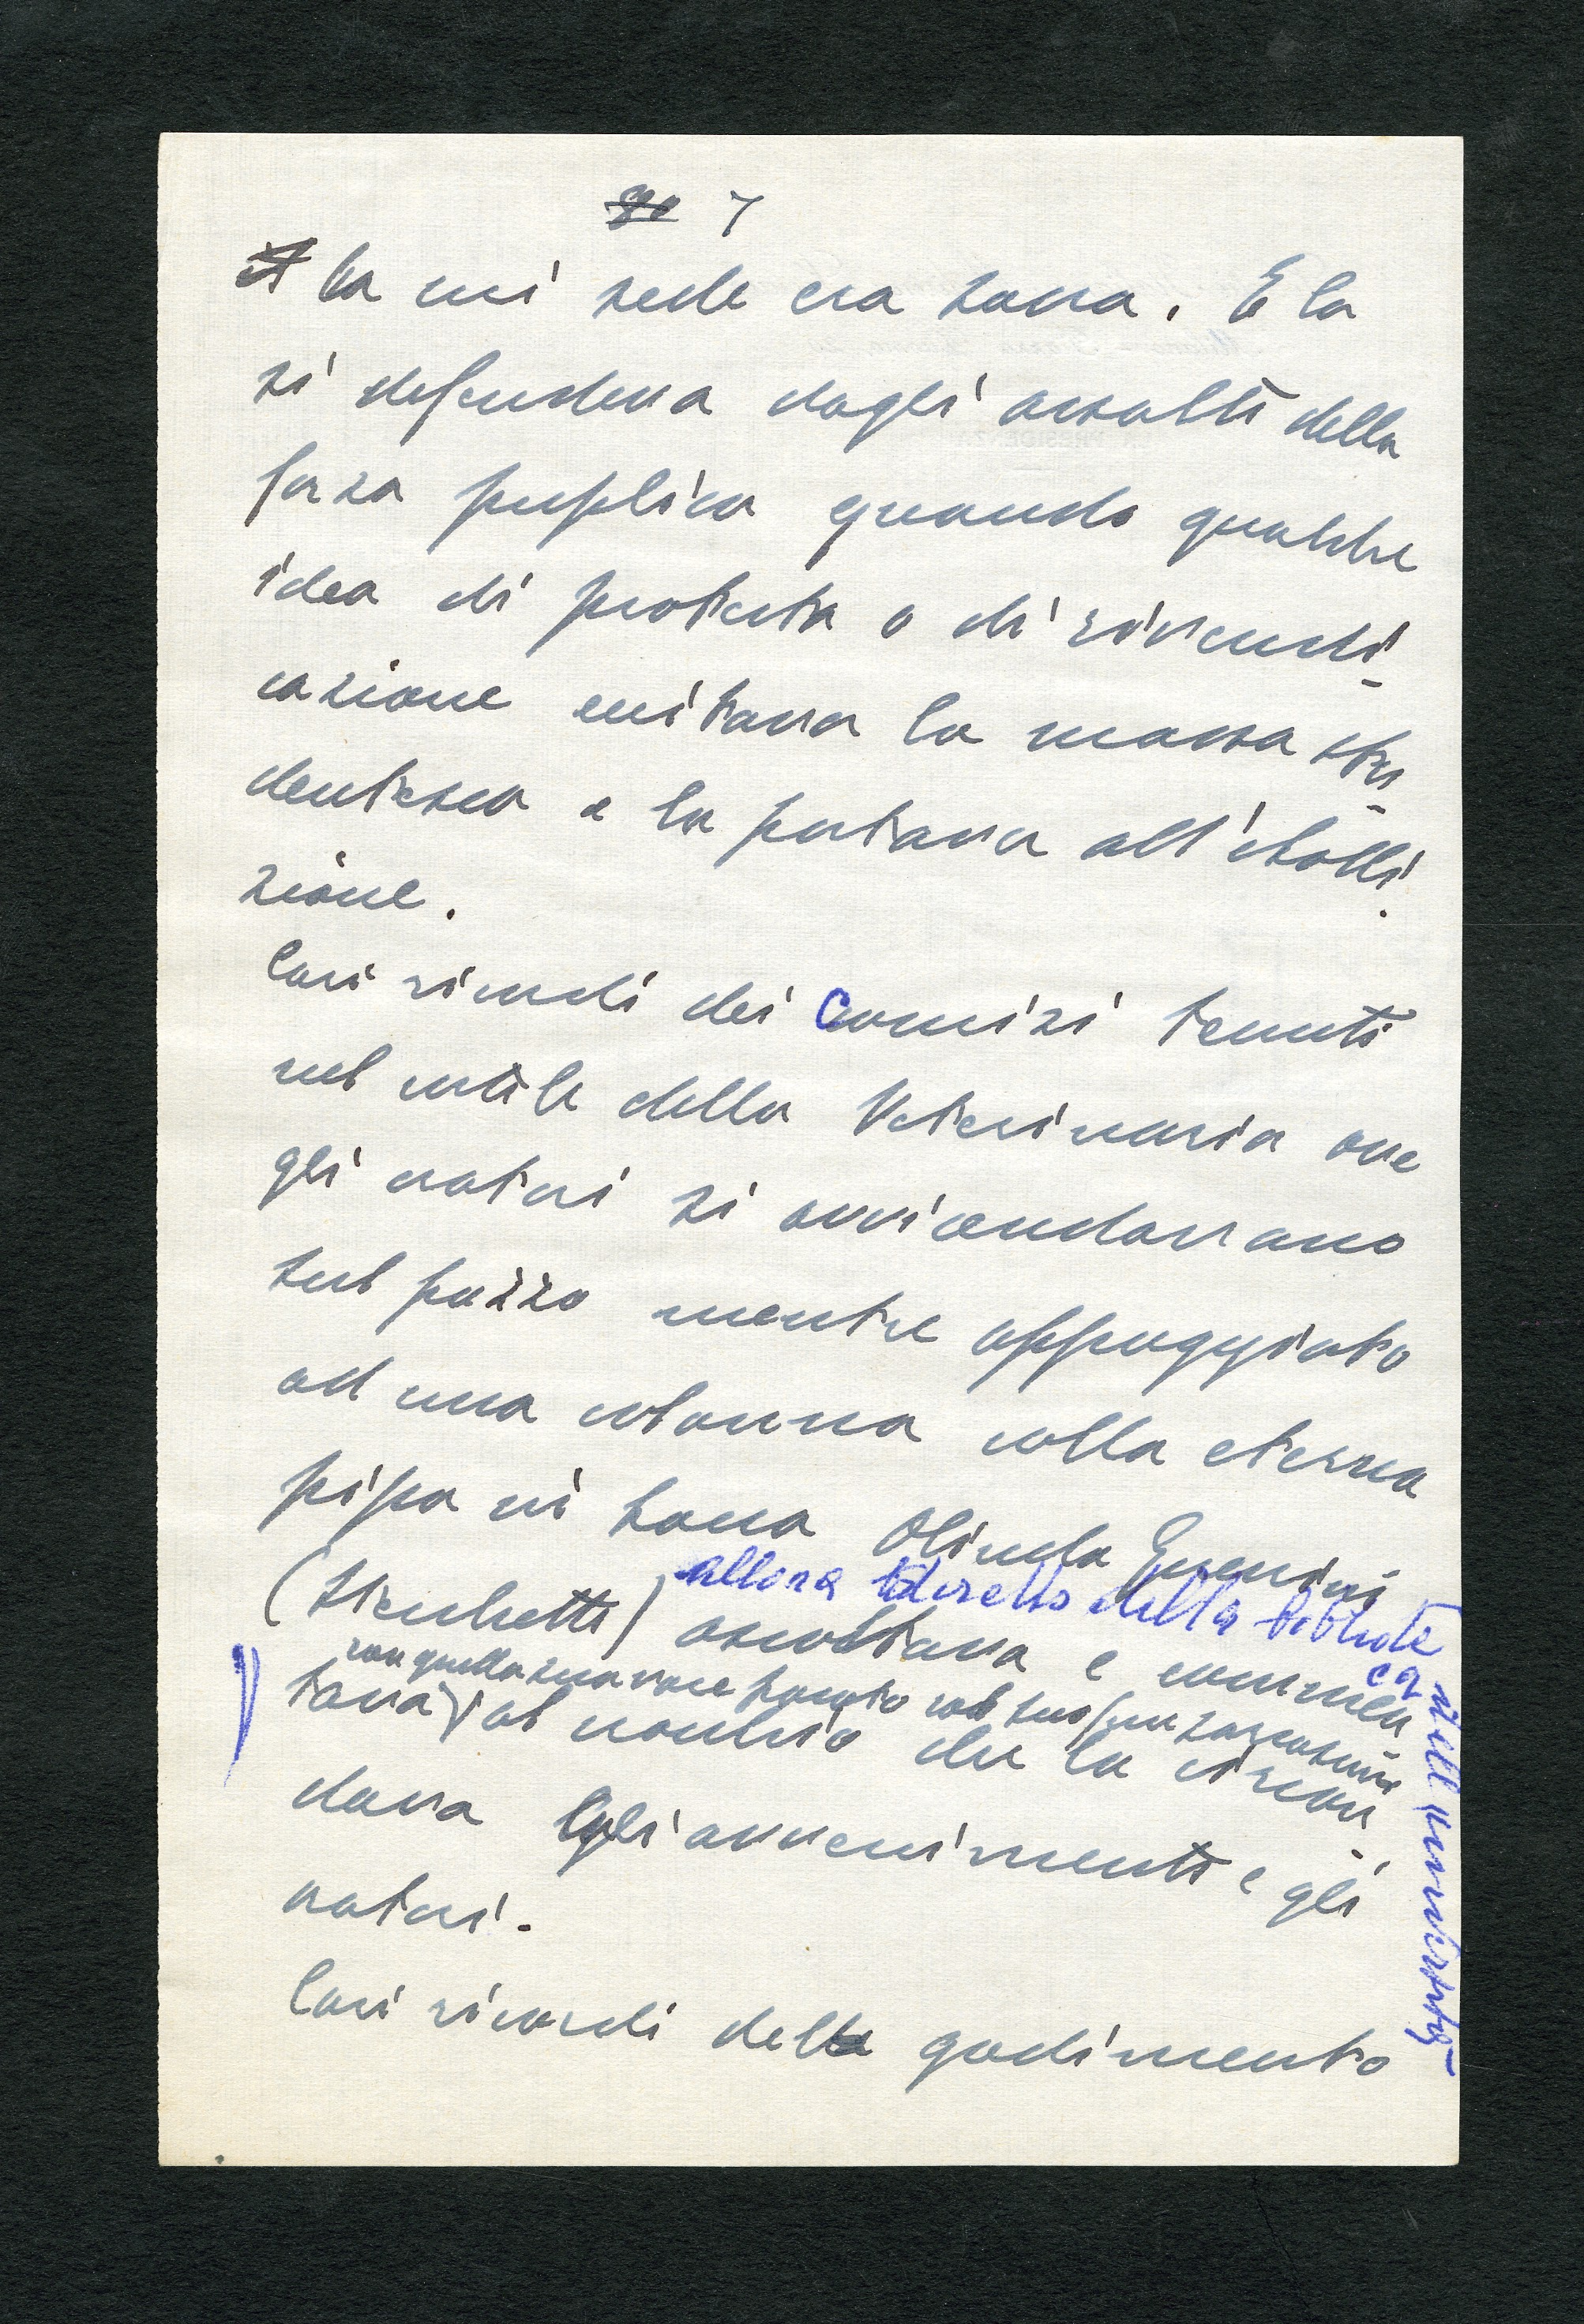 7
la cui sede era sacra. E la
si defendeva dagli assalti della
forza pubblica quando qualche
idea di protesta o di rivendi-
cazione eccitava la massa stu-
dentesca e la portava all'eboll-
zione.
Cari ricordi dei Comizi tenuti
nel cortile della Veterinaria ove
gli oratori si avvicendavano
sul pozzo mentre appoggiato
ad una colonna colla eterna
pipa vi stava Olindo Guerrini
(Stecchetti) allora diretto della bibliote
ca nell'università
ascoltava e commen
con quella sua voce col suo sarcasmo
tava al nocchio che la circon-
dava gli avvenimenti e gli
oratori.
Cari ricordi del godimento